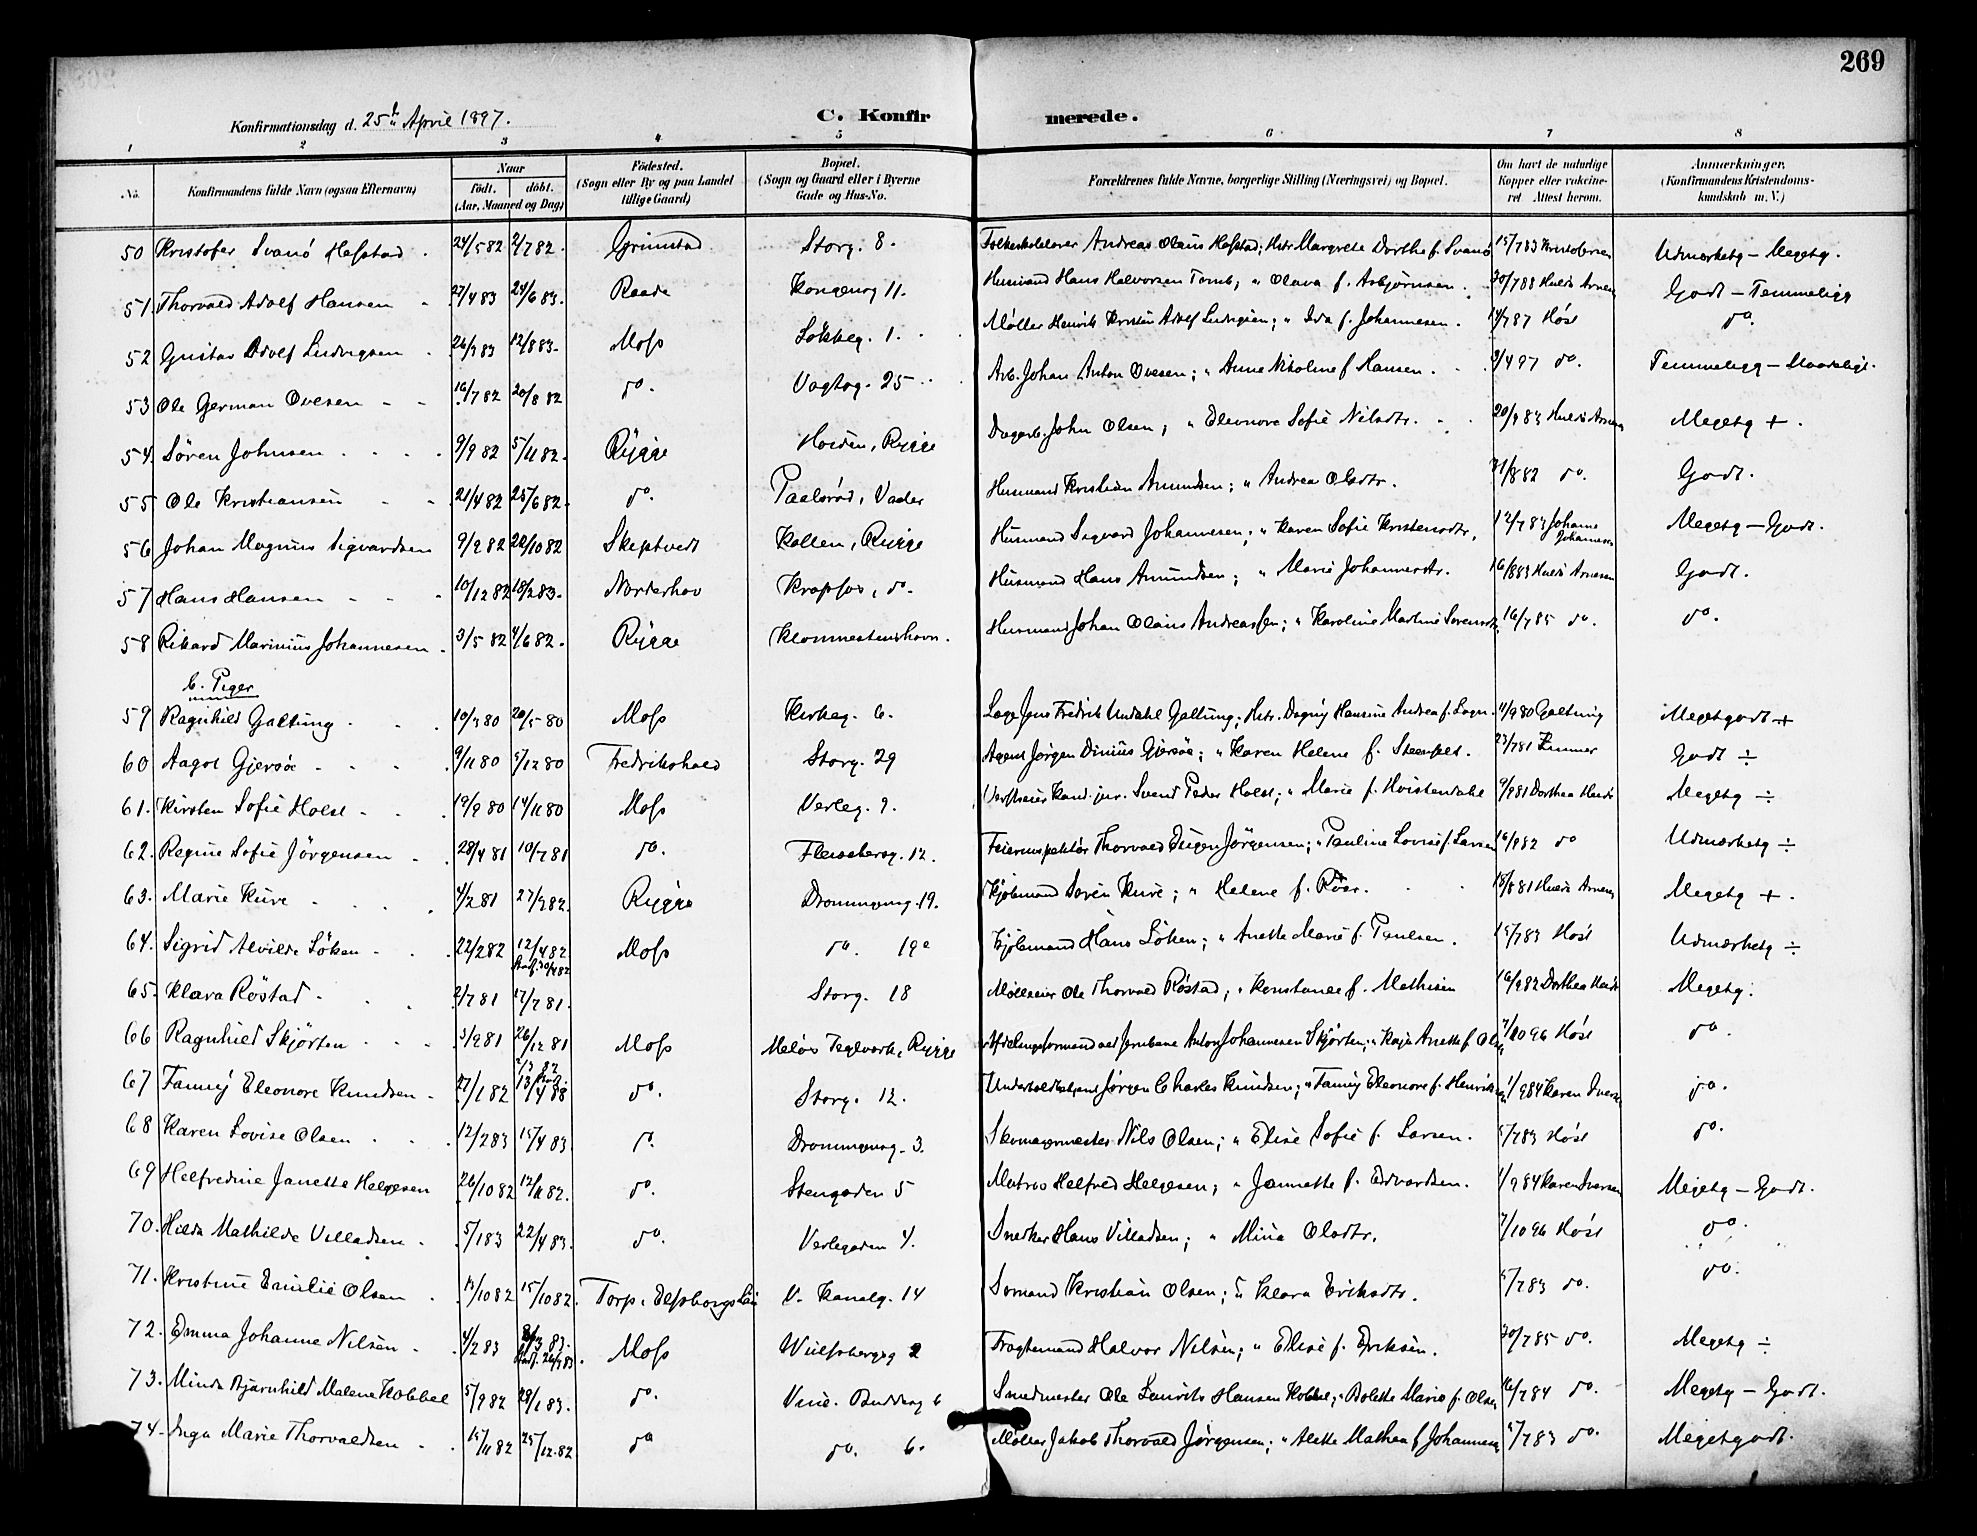 269
Konfirmationsdag d. 25de April 1897.
C. Konfirmerede.
1 2 3 4 5 6 7 8
No. Konfirmandens fulde Navn (ogsaa Efternavn) Naar født. døbt. (Aar, Maaned og Dag) Födested. (Sogn eller By og paa Landet tillige Gaard) Bopæl. (Sogn og Gaard eller i Byerne Gade og Hus-No. Forældrenes fulde Navne, borgerlige Stilling (Næringsvei) og Bopæl. Om havt de naturlige Kopper eller vakcineret. Attest herom. Anmærkninger. (Konfirmandens Kristendomskundskab m. V.)
50 Kristofer Svanö Hofstad 24/5 82 2/7 82 Grimstad Storg. 8. Andreas Olaus Hofstad; Hstr. Margrete Dorthe f. Svanö 15/7 83 Kristofersen Udmærketg – Megetg.
51. Thorvald Adolf Hansen 27/4 83 24/6 83 Raade Kongensg 11. Husmand Hans Halvorsen Tomb; " Olava f. Asbjørnsen. 30/7 88 Huels Arnesen Godt – Temmeligg
52 Gustav Adolf Ludvigsen 26/3 83 12/8 83 Moss Sokkeg. 1. Møller Henrik Kristian Adolf Ludvigsen; " Ida f. Johannesen. 14/7 87 Høst do.
53 Ole German Ovesen 16/7 82 20/8 82 do. Vogtsg. 25 Arb. Johan Anton Ovesen; " Anne Nikoline f Hansen. 3/4 97 do. Temmeligg – Maadelig.
54. Sören Johnsen 9/9 82 5/11 82. Rygge Hoiden, Rygge Dagarb. John Olsen; " Eleonore Sofie Nilsdtr. 20/9 83 Huels Arnesen Megetg +.
55 Ole Kristiansen 21/4 82 25/6 82. do. Paalsröd, Vaaler Husmand Kristian Amundsen; " Andrea Olsdtr. 31/8 82 do. Godt.
56 Johan Magnus Sigvardsen 9/9 82 22/10 82 Skiptvedt Kallen, Rygge Husmand Sigvard Johannesen; " Karen Sofie Kristensdtr. 12/7 83 Johanne Johannesen Megetg – Godt.
57 Hans Hansen 10/12 82 18/2 83. Norderhov Krapfos, do. Husmand Hans Amundsen; " Marie Johannesdtr. 16/8 83 Huels Arnesen Godt.
58 Rikard Marinius Johannesen 3/5 82 4/6 82. Rygge Klommestenshavn. Husmand Johan Olaus Andreassen; " Karoline Martine Sörensdtr. 16/7 85 do. do.
b. Piger
59 Ragnhild Galtung 10/3 80 20/5 80 Moss Kirkeg. 6. Læge Jens Fredrik Undahl Galtung; Hstr. Dagny Hansine Andrea f. Lagn. 11/9 80 Galtung Megetgodt +
60 Aagot Gjersöe 9/11 80 5/12 80 Fredrikshald Storg. 29 Agent Jørgen Dinius Gjersöe; " Karen Helene f. Steenfelt. 23/7 81 Zimmer Godt ÷
61. Kirsten Sofie Holst 19/9 80 14/11 80 Moss Verleg. 9. Kand. jur. Svend Peder Holst; " Marie f. Hvistendahl 9/9 81 Dorthea Huels Megetg ÷
62. Regine Sofie Jörgensen 28/4 81 10/7 81 do. Fleischersg. 12. Feierinspektör Thorvald Eugen Jörgensen; " Pauline Lovise f. Larsen 16/9 82 do Udmærketg ÷
63. Marie Kure 4/2 81 27/9 82. Rygge Dronningensg. 19. Kjöbmand Sören Kure; " Helene f. Röer. 18/8 81 Huels Arnesen Megetg +.
64. Sigrid Alvilde Söhen 22/2 82 12/4 82 Stadf. 30/4 82 Moss do. 19a Kjöbmand Hans Söhen; " Anette Marie f. Paulsen. 15/7 83 Høst Udmærketg ÷
65. Klara Röstad 2/7 81 17/7 81. Storg. 18 Mölleeier Ole Thorvald Röstad; " Konstance f. Mathisen 16/9 82 Dorthea Huels Megetg.
66 Ragnhild Skjörten 3/9 81 26/12 81 Moss Melös Teglverk, Rygge Afdelingsformand ved Jernbane Anton Johannesen Skjörten; " Kaja Anette f. Olsen 7/10 96 Høst do.
67 Fanny Eleonore Knudsen 27/1 82 do. Storg. 12. Jørgen Charles Knudsen; " Fanny Eleonore f. Henriksen 1/9 84 Karen Iversen do.
68 Karen Lovise Olsen 12/2 83 15/4 83 do. Dronningensg. 3. Skomagermester Nils Olsen; " Elise Sofie f. Larsen. 5/7 83 Høst do.
69 Helfredine Janette Helgesen 26/10 82 12/11 82. do. Stengaden 5 Matros Helfred Helgesen; " Jannette f. Edvardsen. 1/9 84 Karen Iversen Megetg – Godt.
70. Hilda Mathilde Villadsen 5/1 83 22/4 83. do. Verlegaden 4. Snedker Hans Villadsen; " Mina Olsdtr. 7/10 96 Høst do.
71. Kristine Emilie Olsen 13/10 82 15/10 82. Torp i Elfsborgs Län V. Kanalg. 14 Sömand Kristian Olsen; " Klara Eriksdtr. 5/7 83 do. do.
72. Emma Johanne Nilsen 4/2 83 Moss Wulfsbergsg 2 Fragtemand Halvor Nilsen; " Elise f. Eriksen. 30/7 85 do. Megetg ÷
73. Minda Bjarnhild Malene Kobbel 5/9 82 28/1 83. do. Smedmester Ole Lauritz Hansen Kobbel; " Bolette Marie f. Olsen 16/7 84 do. Megetg – Godt.
74. Inga Marie Thorvaldsen 15/11 82 25/12 82 do do. 6. Møller Jakob Thorvald Jørgensen; " Alette Mathea f Johannesen 5/7 83 do. Megetgodt.